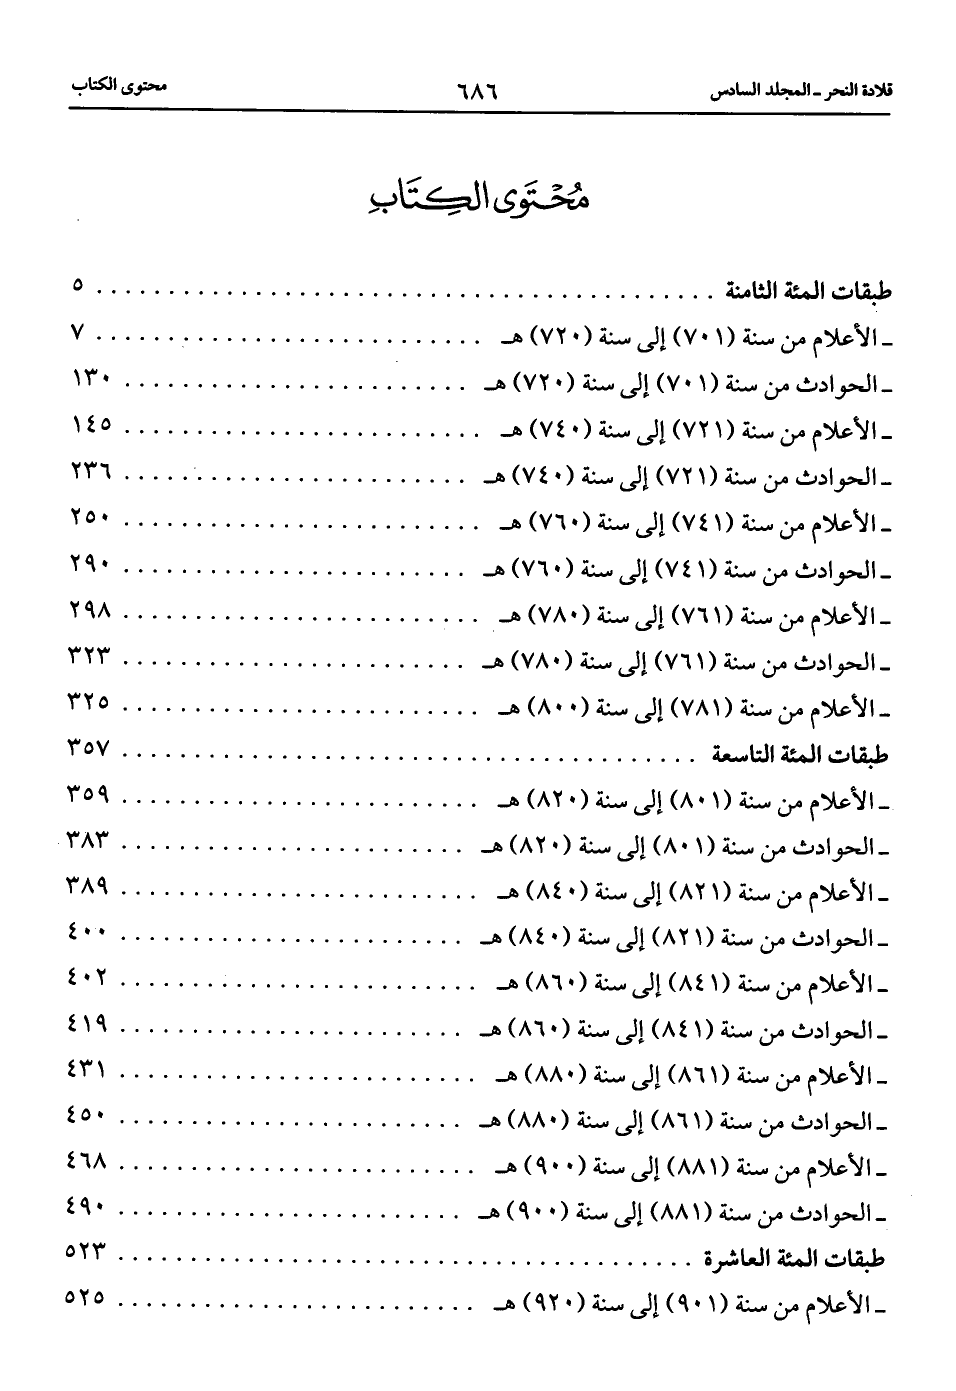 قلادة النحر ـ المجلد السادس ٦٨٦ محتوى الكتاب
مُحْتَوى الكِتَابِ
طبقات المئة الثامنة ........................................ ٥
ـ الأعلام من سنة (٧٠١) إلى سنة (٧٢٠) هـ .......................... ٧
ـ الحوادث من سنة (٧٠١) إلى سنة (٧٢٠) هـ ........................ ١٣٠
ـ الأعلام من سنة (٧٢١) إلى سنة (٧٤٠) هـ ......................... ١٤٥
ـ الحوادث من سنة (٧٢١) إلى سنة (٧٤٠) هـ ........................ ٢٣٦
ـ الأعلام من سنة (٧٤١) إلى سنة (٧٦٠) هـ ......................... ٢٥٠
ـ الحوادث من سنة (٧٤١) إلى سنة (٧٦٠) هـ ........................ ٢٩٠
ـ الأعلام من سنة (٧٦١) إلى سنة (٧٨٠) هـ ......................... ٢٩٨
ـ الحوادث من سنة (٧٦١) إلى سنة (٧٨٠) هـ ........................ ٣٢٣
ـ الأعلام من سنة (٧٨١) إلى سنة (٨٠٠) هـ ......................... ٣٢٥
طبقات المئة التاسعة ........................................ ٣٥٧
ـ الأعلام من سنة (٨٠١) إلى سنة (٨٢٠) هـ ......................... ٣٥٩
ـ الحوادث من سنة (٨٠١) إلى سنة (٨٢٠) هـ ........................ ٣٨٣
ـ الأعلام من سنة (٨٢١) إلى سنة (٨٤٠) هـ ......................... ٣٨٩
ـ الحوادث من سنة (٨٢١) إلى سنة (٨٤٠) هـ ........................ ٤٠٠
ـ الأعلام من سنة (٨٤١) إلى سنة (٨٦٠) هـ ......................... ٤٠٢
ـ الحوادث من سنة (٨٤١) إلى سنة (٨٦٠) هـ ........................ ٤١٩
ـ الأعلام من سنة (٨٦١) إلى سنة (٨٨٠) هـ ......................... ٤٣١
ـ الحوادث من سنة (٨٦١) إلى سنة (٨٨٠) هـ ........................ ٤٥٠
ـ الأعلام من سنة (٨٨١) إلى سنة (٩٠٠) هـ ......................... ٤٦٨
ـ الحوادث من سنة (٨٨١) إلى سنة (٩٠٠) هـ ........................ ٤٩٠
طبقات المئة العاشرة ........................................ ٥٢٣
ـ الأعلام من سنة (٩٠١) إلى سنة (٩٢٠) هـ ......................... ٥٢٥